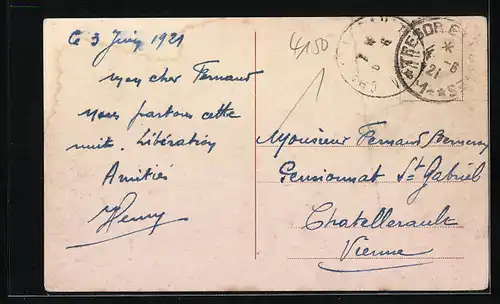 Le 3 Juin 1921
Mon cher Fernand
Nous partons cette
nuit. Libération
Amitiés
Henry
4/150
TRESOR E
* 4-6 *
21
Monsieur Fernand
Pensionnat St Gabriel
Chatellerault
Vienne